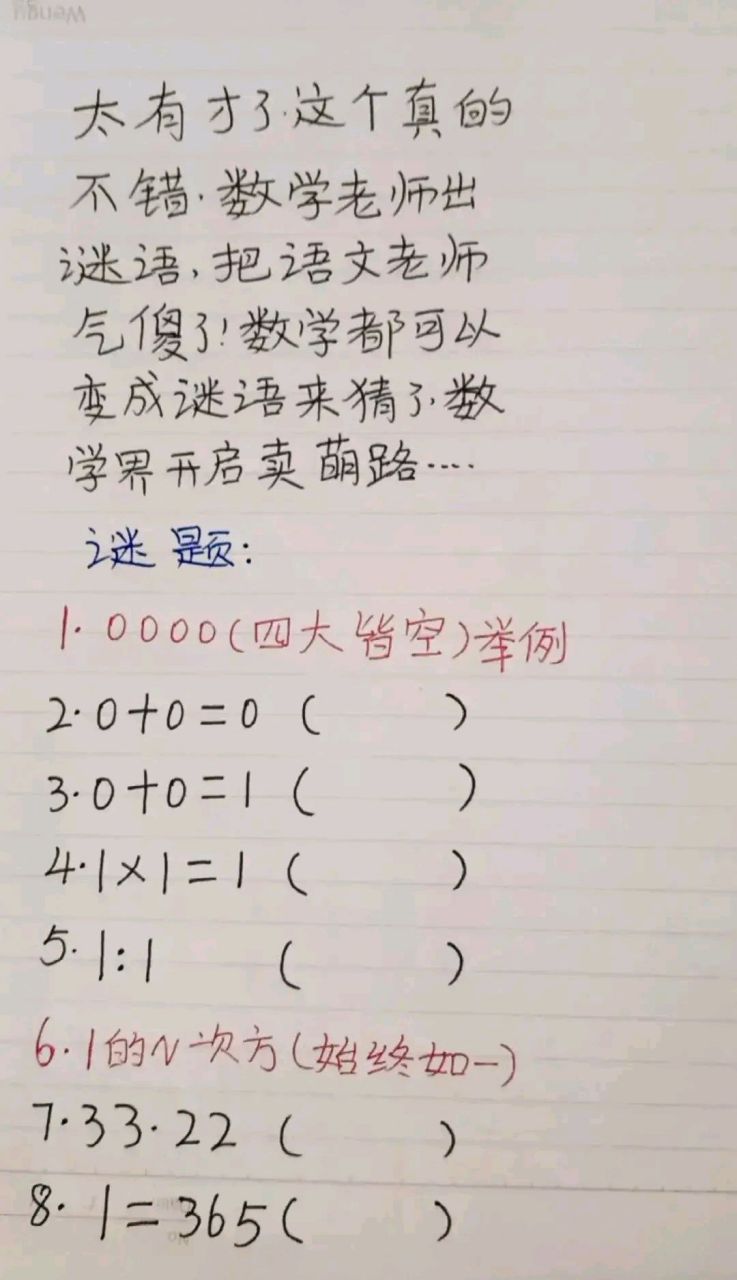 太有才了.这个真的
不错.数学老师出
谜语,把语文老师
气傻了!数学都可以
变成谜语来猜了.数
学界开启卖萌路....
谜题:
1.0000(四大皆空)举例
2.0+0=0 (      )
3.0+0=1 (      )
4.1×1=1 (      )
5.1:1 (      )
6.1的N次方(始终如一)
7.33.22 (      )
8.1=365(      )